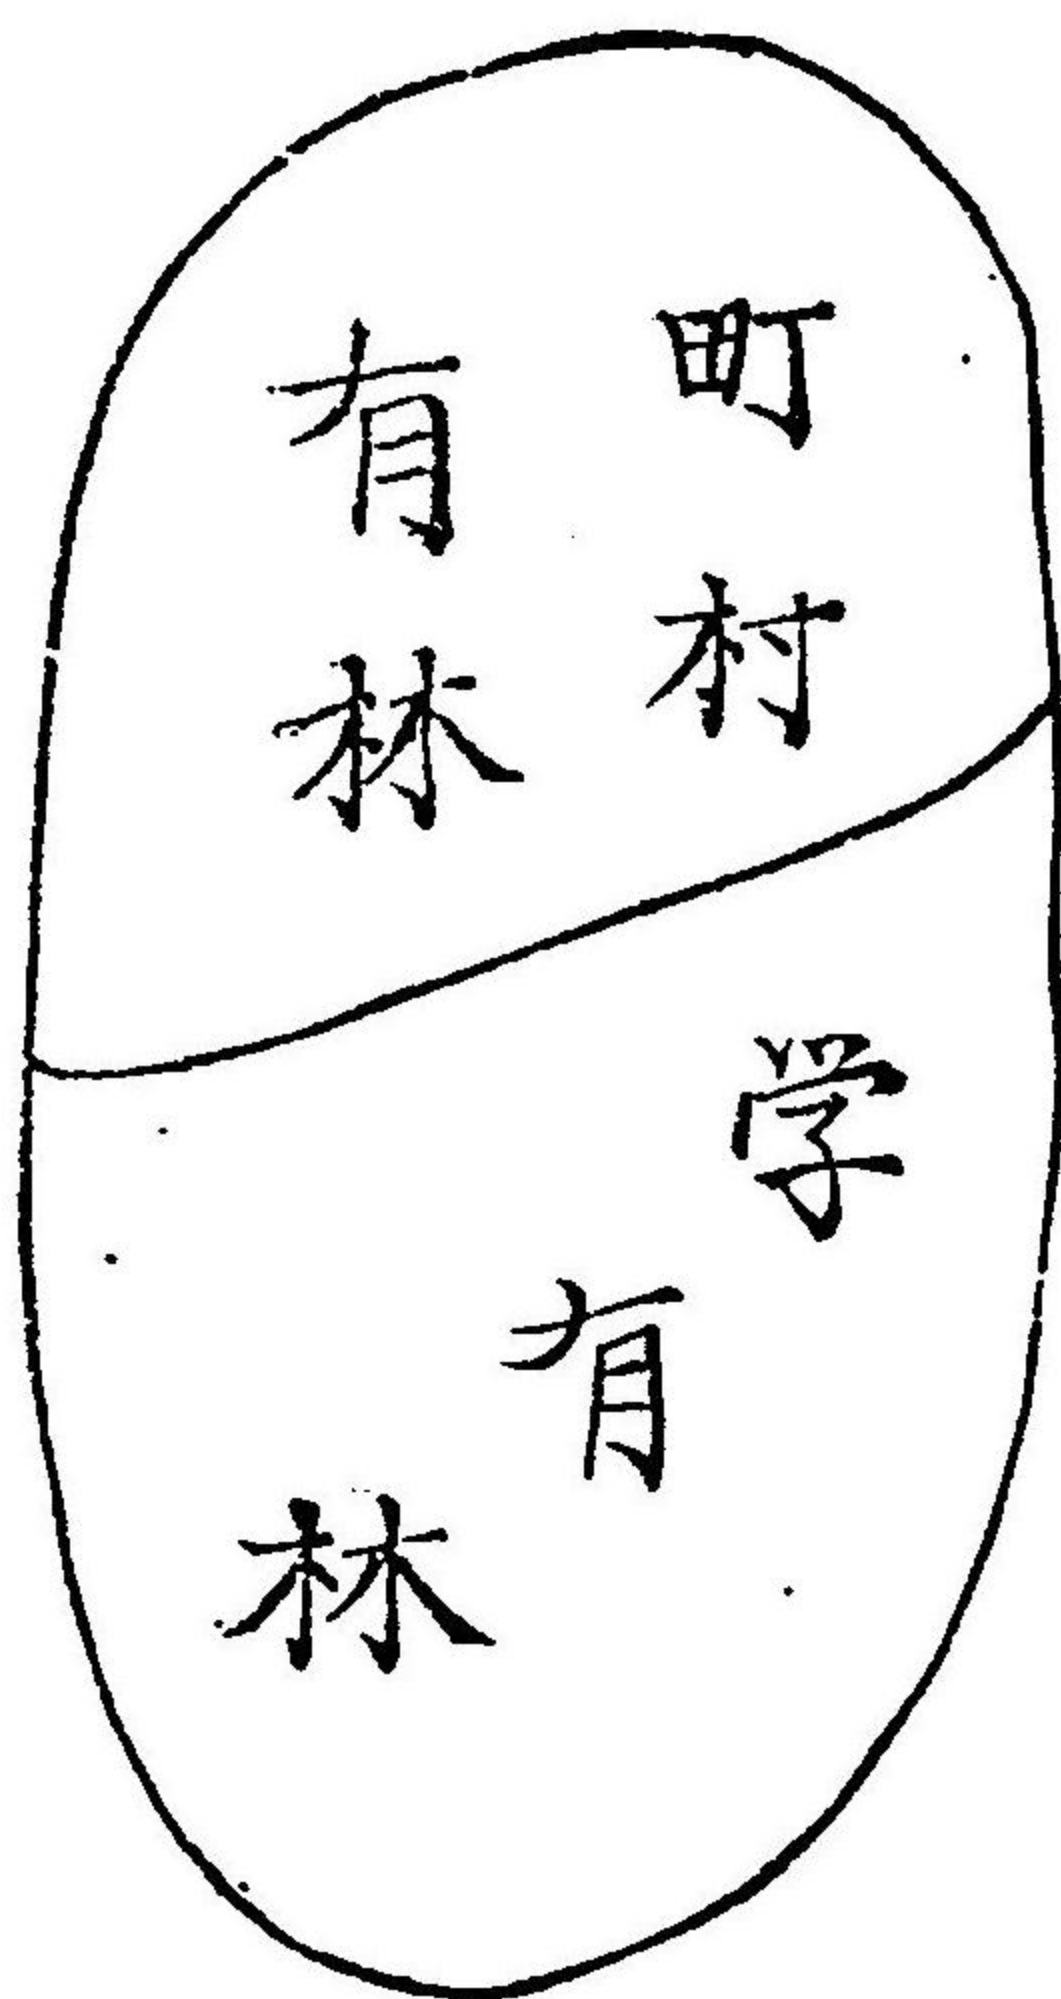 町村
有林
学有林